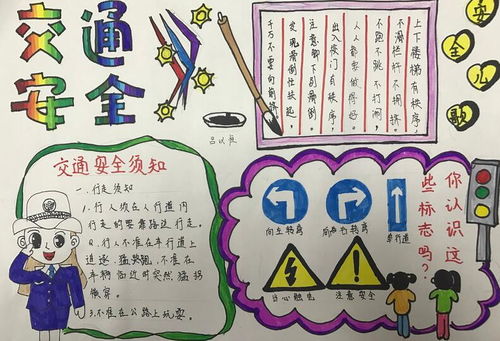 交通
安全
安
全
儿
歌
上下楼梯有秩序，
不滑栏杆不拥挤。
不跑不跳不打闹，
人人都要做得好。
出入校门有秩序，
注意脚下别滑倒。
发现滑倒快扶起，
千万不要向前挤。
交通安全须知
一、行走须知
1.行人须在人行道内
行走的要靠路边行走。
2.行人不准在车行道上
追逐、猛跑，不准在
车辆临近时突然猛拐
横穿。
3.不准在公路上玩耍。
你认识这
些标志吗？
向左转弯
向右转弯
单行道
当心触电
注意安全